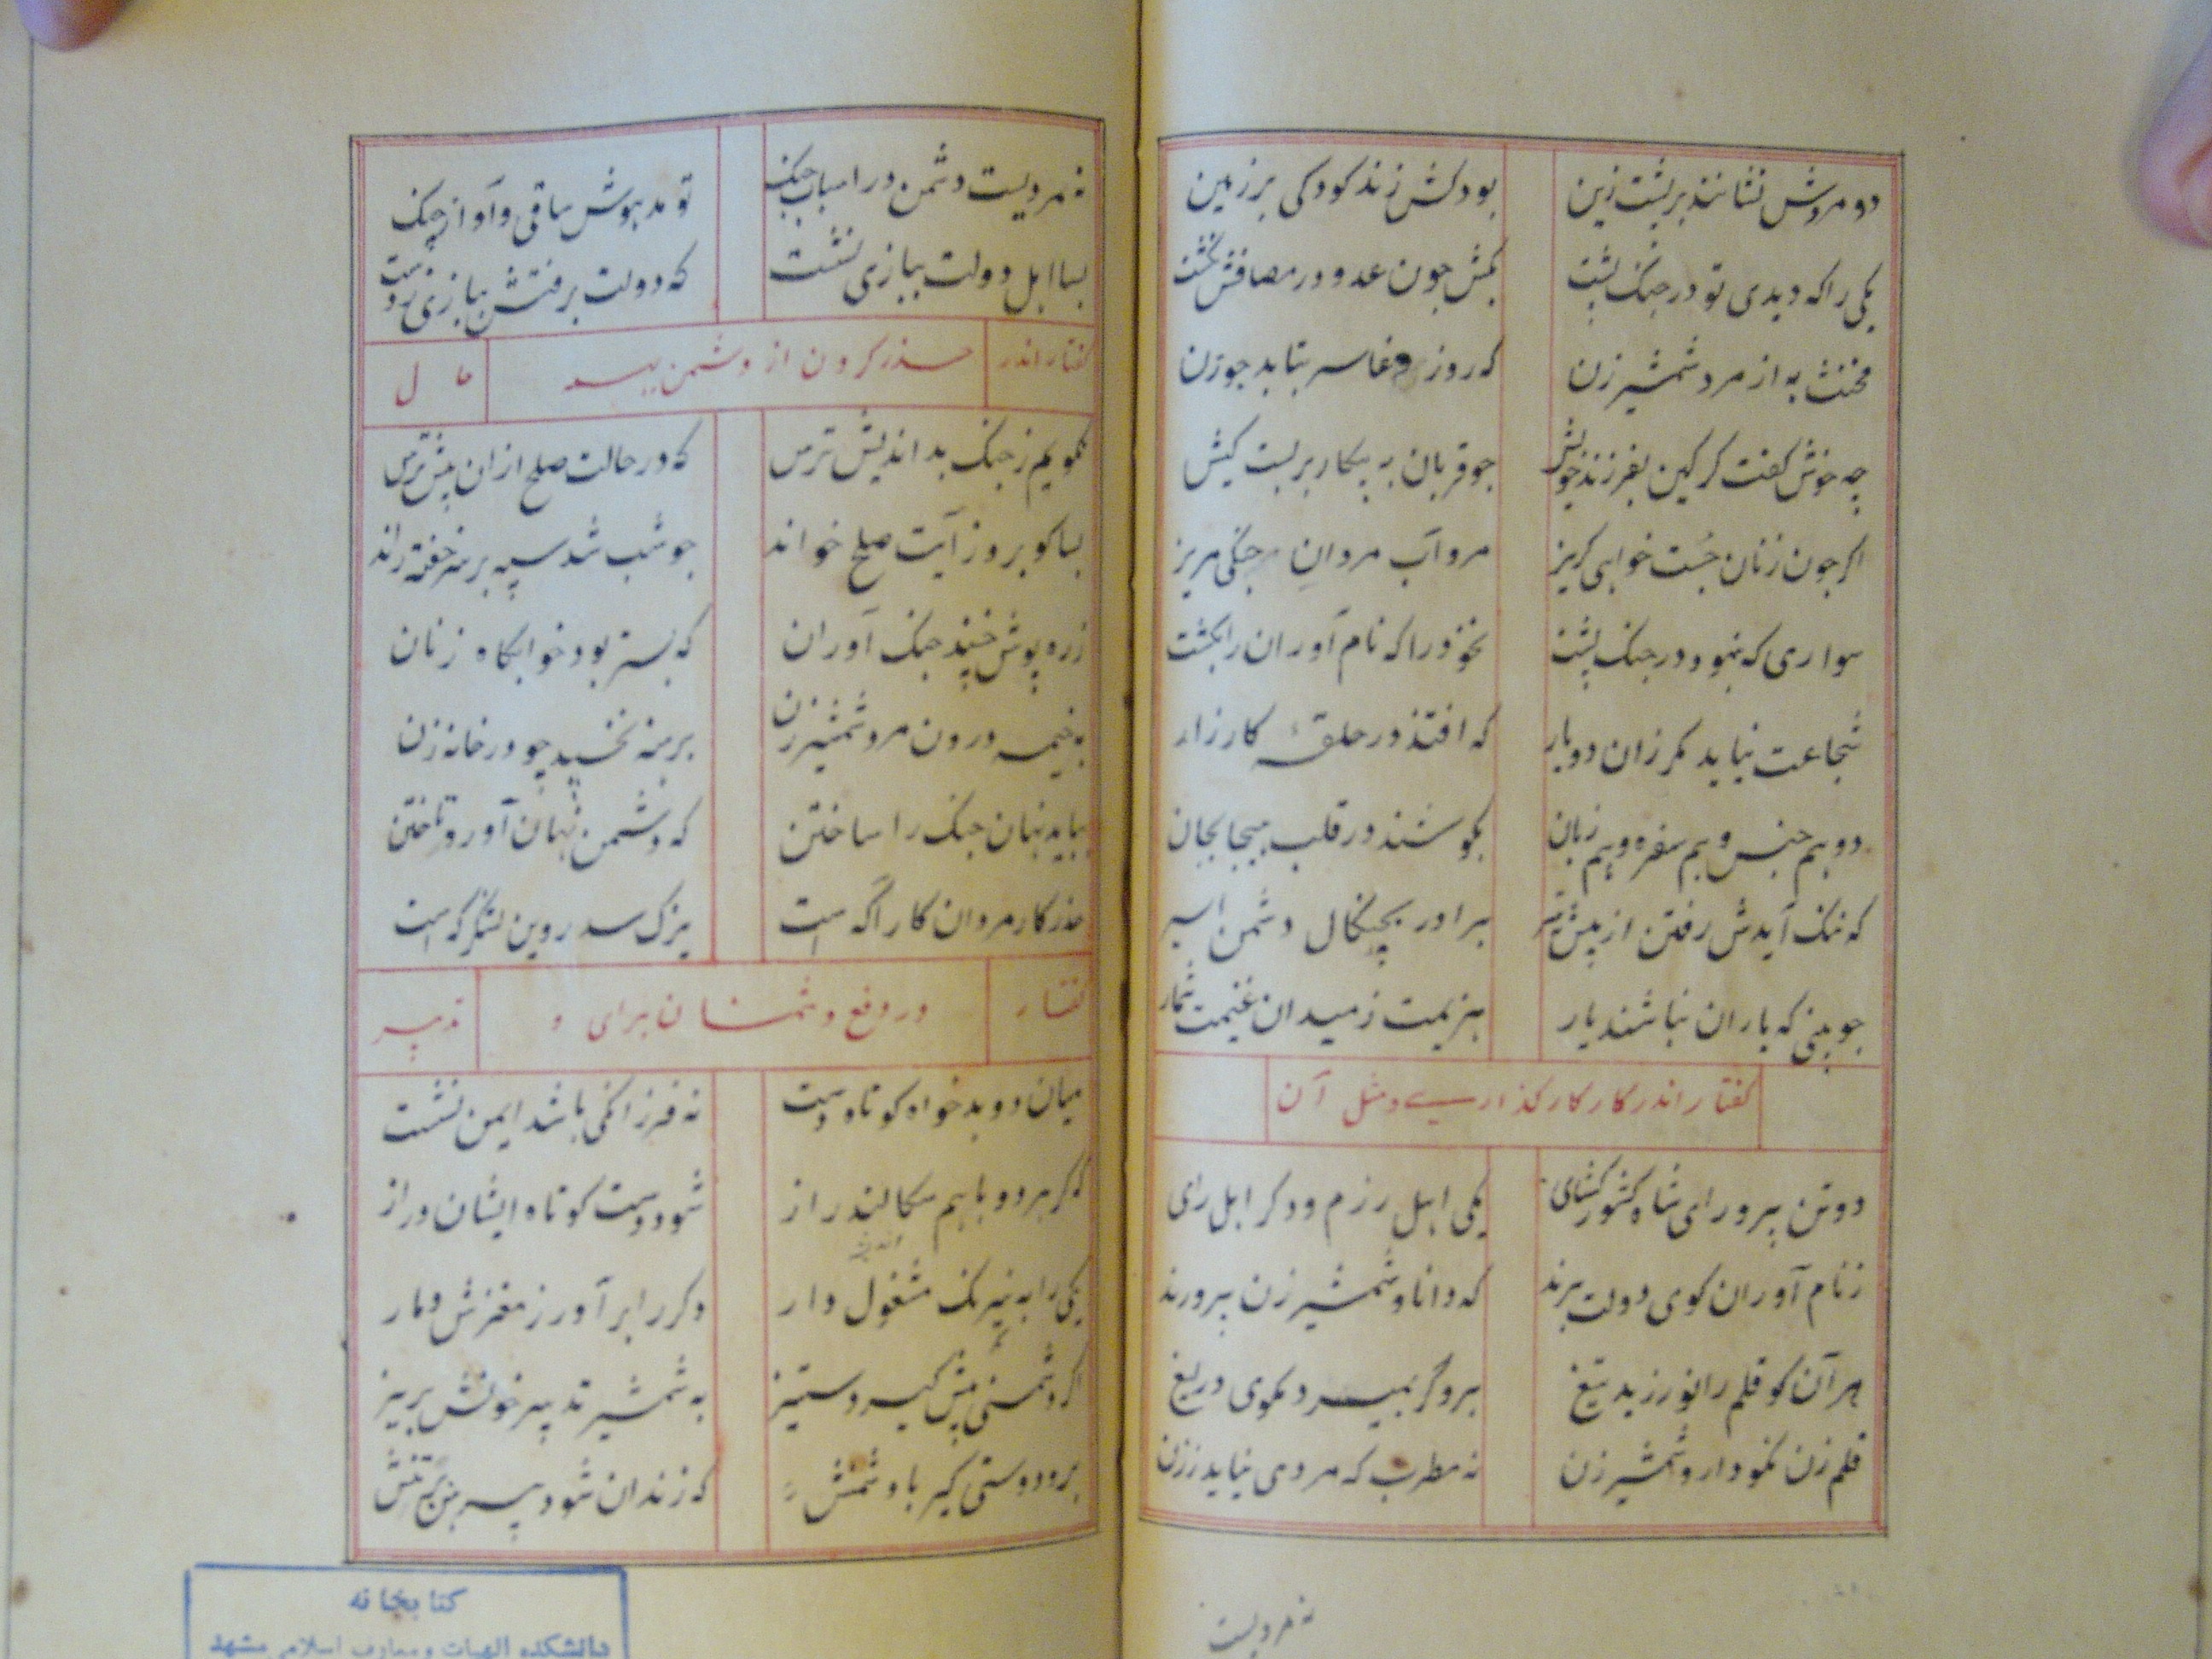 دو مردش نشانند بر پشت زین بود کش زند کودکی بر زمین
یکی را که دیدی تو در جنک پشت بکش جون عدو در مصافش نکشت
مخنث به از مرد شمشیر زن که روز وغا سر بتابد جو زن
چه خوش کفت کرکین بفرزند خویش جو قربان به پیکار بر بست کیش
اکر جون زنان جست خواهی کریز مرو آب مردان جنکی مریز
سواری که بنمود در جنک پشت نخود را که نام آوران را بکشت
شجاعت نیاید مکر زان دو یار که افتند در حلقه کارزار
دو هم جنس و هم سفره و هم زبان بکوشند در قلب هیجا بجان
که ننک آیدش رفتن از پیش تیر برادر بچنکال دشمن اسیر
جو بینی که یاران نباشند یار هزیمت ز میدان غنیمت شمار
کفتار اندر کار کارکذاری و مثل آن
دو تن پرور ای شاه کشور کشای یکی اهل رزم و دکر اهل رای
ز نام آوران کوی دولت برند که دانا و شمشیر زن پرورند
هر آن کو قلم را نورزید تیغ برو کر بمیرد مکوی دریغ
قلم زن نکو دار و شمشیر زن نه مطرب که مردی نیاید ز زن
نه مردیست
نه مردیست دشمن در اسباب جنک تو مدهوش ساقی و آواز چنک
بسا اهل دولت ببازی نشست که دولت برفتش ببازی ز دست
کفتار اندر حذر کردن از دشمن حال
نکویم ز جنک بد اندیش ترس که در حالت صلح از ان بیش ترس
بسا کو بروز آیت صلح خواند جو شب شد سپه بر سر خفته راند
زره پوش خسپند جنک آوران که بستر بود خوابکاه زنان
به خیمه درون مرد شمشیر زن برهنه نخسپد چو در خانه زن
بباید نهان جنک را ساختن که دشمن نهان آورد تاختن
حذر کار مردان کار آکه است یزک سد روین لشکرکه است
کفتار در دفع دشمنان برای و تدبیر
میان دو بدخواه کوتاه دست نه فرزانکی باشد ایمن نشست
که کر هر دو باهم سکالند راز شود دست کوتاه ایشان دراز
یکی را به نیرنک مشغول دار دکر را بر آور ز مغزش دمار
اکر دشمنی پیش کیرد ستیز به شمشیر تدبیر خونش بریز
برو دوستی کیر با دشمنش که زندان شود پیرهن بر تنش
کتابخانه
دانشکده الهیات و معارف اسلامی مشهد